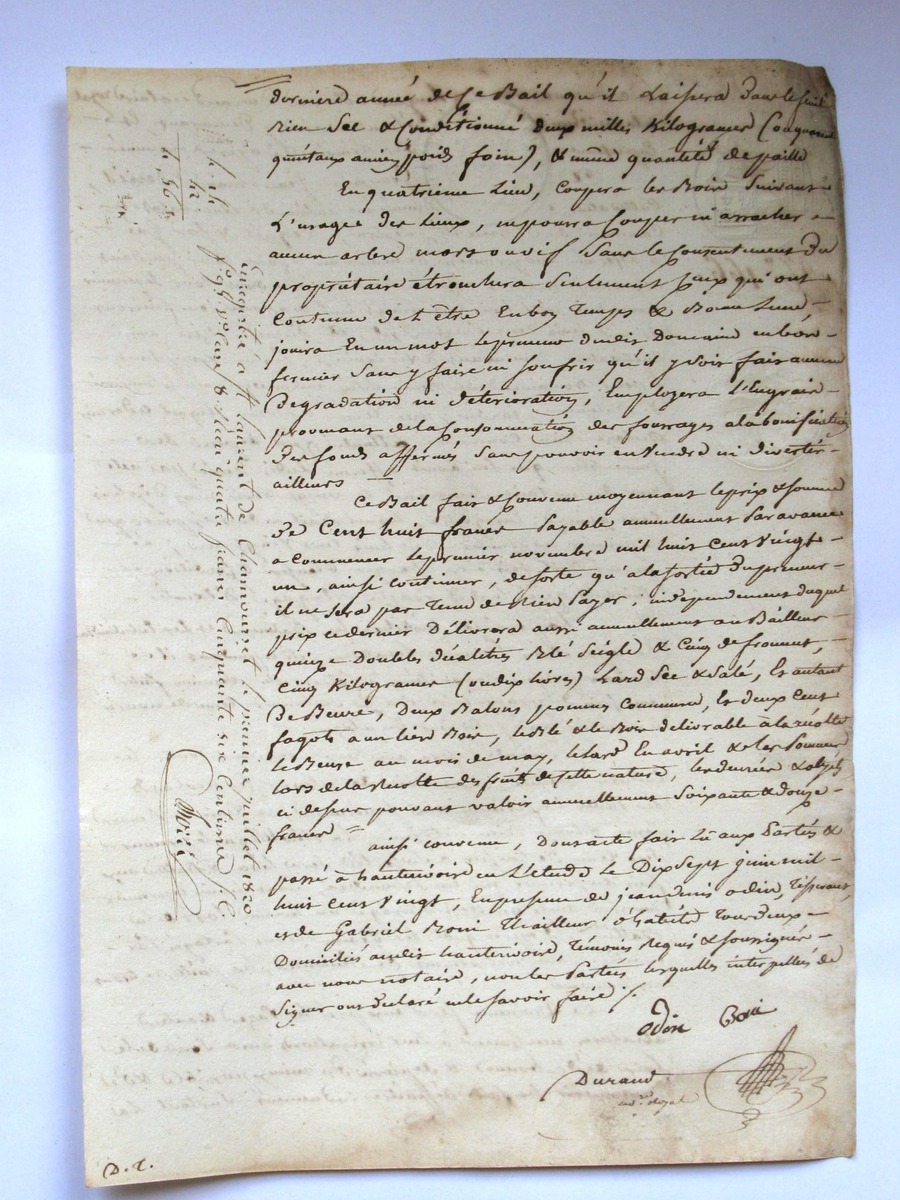 derniere année de ce Bail qu'il Laissera dans le fenil
Bien Sec & Conditionné deux milles Kilogrames (ou quarante
quintaux ancien poids foin), & même quantité de paille
En quatrieme Lieu, Coupera les Bois Suivant
L'usage des Lieux, ne pourra Couper ni arracher
aucun arbre mort ou vif Sans le Consentement du
propriétaire étronchera Seulement Ceux qui ont
Coutume de L'être En bon Temps & Bonne Lune,
jouira En un mot le preneur dudit Domaine en bon
fermier Sans y faire ni Soufrir qu'il y Soit fait aucune
Degradation ni détérioration, Employera L'Engrain
provenant de la Consommation des fourrages a la bonification
des fonds affermés Sans pouvoir en Vendre ni divertir
ailleurs
Ce Bail fait & Convenu moyennant le prix & Somme
de Cent huit francs payable annuellement par avance
a Commencer le premier novembre mil huit Cent Vingt
un, ainsi Continuer, de sorte qu'a la sortie du preneur
il ne Sera pas Tenu de Rien payer ; independemment duquel
prix ce dernier Délivrera aussi annuellement au Bailleur
quinze Doubles décalitres Blé Seigle & Cinq de froment,
Cinq Kilogrames (ou dix livres) Lard Sec & Salé, Et autant
De Beure, Deux Ballons pommes Commune, Et deux Cent
fagots Bois, le Blé & le Bois délivrable à la récolte
le Beure au mois de may, le lard En avril & les Pommes
lors de la récolte des fruits de cette nature, les denrées & objets
ci dessus pouvant valoir annuellement Soixante & douze
francs
ainsi convenu, Dont acte fait Lû aux Parties &
passé à hauterivoire en L'etude Le Dix Sept juin mil
huit Cent Vingt, En presence de jean denis odin, Tisserand
et de Gabriel Boni Thailleur d'habits Tous deux
Domiciliés audit hauterivoire, Témoins Requis & Soussignés
avec nous notaire, non les Parties lesquelles interpellées de
Signer ont déclaré ne le Savoir faire ./.
odin Boni
Durand
not. Royal
D. t.
4. 14
42
4, 56
Enregistré a St Laurent de Chamousset le premier juillet 1820
f° 98 v° Case 8 Reçu quatre francs Cinquante six Centimes S.C.